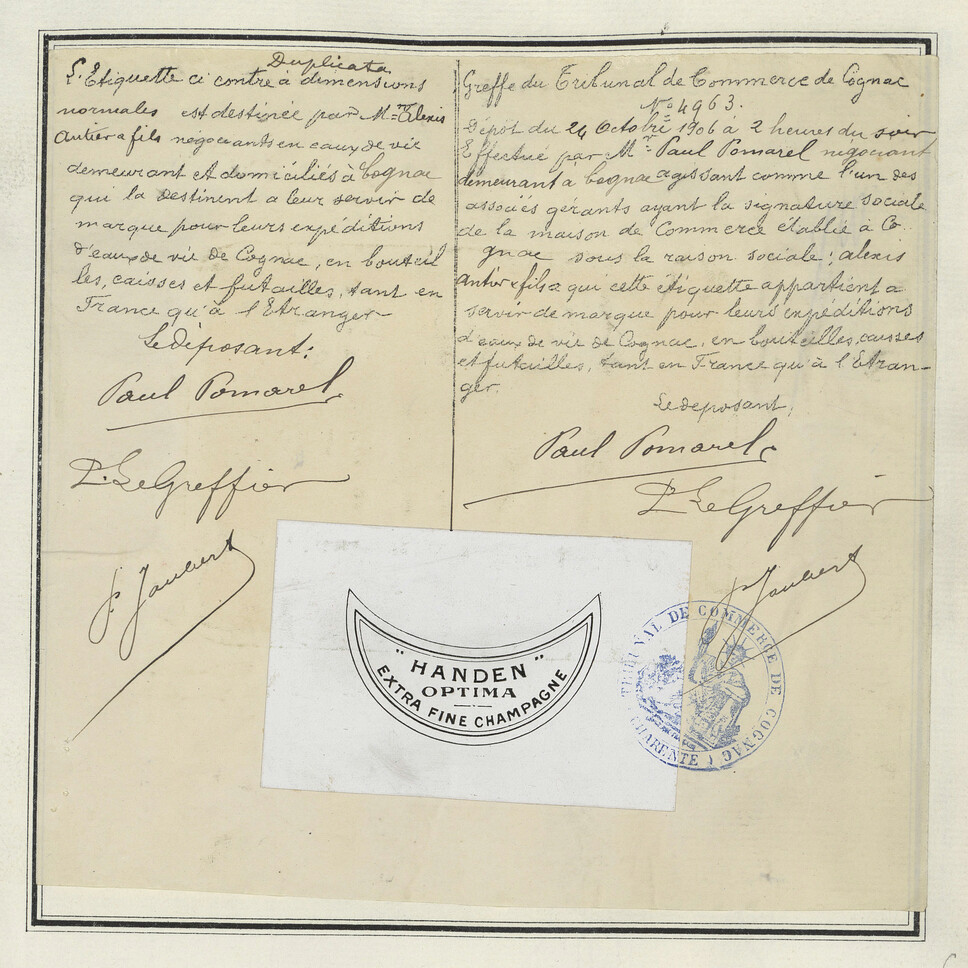 Duplicata
L'Etiquette ci contre à dimensions
normales est destinée par M.rs Alexis
Antier & fils négociants en eaux de vie
demeurant et domiciliés à Cognac
qui la destinent a leur servir de
marque pour leurs expéditions
d'eaux de vie de Cognac, en bouteil
les, caisses et futailles, tant en
France qu'à l'Etranger
Le déposant:
Paul Pomarel
Pr. Le Greffier
Jaubert
Greffe du Tribunal de Commerce de Cognac
No 4963.
Dépôt du 24 Octobre 1906 à 2 heures du soir
Effectué par Mr. Paul Pomarel négociant
demeurant a Cognac agissant comme l'un des
associés gérants ayant la signature sociale
de la maison de Commerce établie à Co-
gnac sous la raison sociale: Alexis
Antier & fils a qui cette étiquette appartient a
servir de marque pour leurs expéditions
d'eaux de vie de Cognac, en bouteilles, caisses
et futailles, tant en France qu'à l'Etran-
ger.
Le deposant,
Paul Pomarel
Pr Le Greffier
Jaubert
"HANDEN"
OPTIMA
EXTRA FINE CHAMPAGNE
TRIBUNAL DE COMMERCE DE COGNAC
CHARENTE